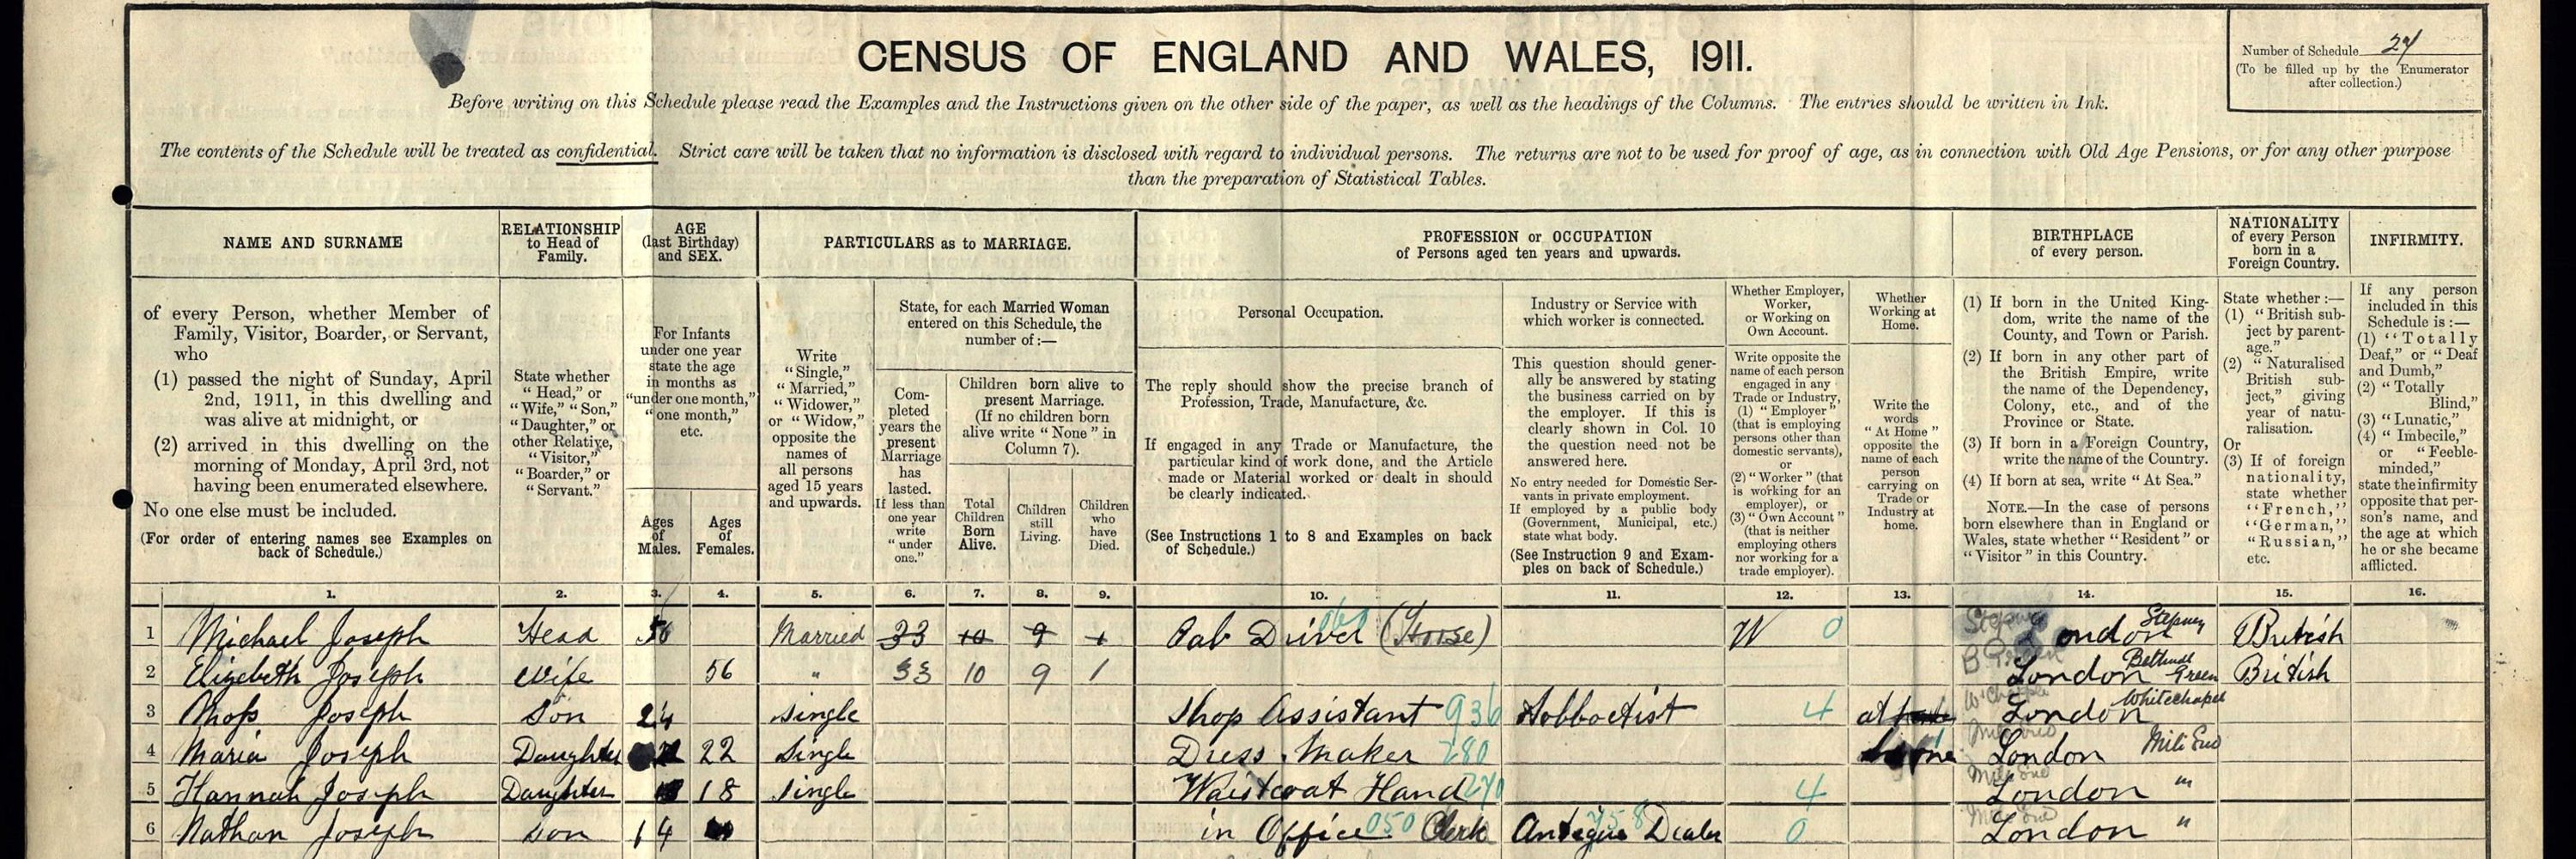 CENSUS OF ENGLAND AND WALES, 1911.
Number of Schedule 24
(To be filled up by the Enumerator
after collection.)
Before writing on this Schedule please read the Examples and the Instructions given on the other side of the paper, as well as the headings of the Columns. The entries should be written in Ink.
The contents of the Schedule will be treated as confidential. Strict care will be taken that no information is disclosed with regard to individual persons. The returns are not to be used for proof of age, as in connection with Old Age Pensions, or for any other purpose
than the preparation of Statistical Tables.
NAME AND SURNAME
of every Person, whether Member of
Family, Visitor, Boarder, or Servant,
who
(1) passed the night of Sunday, April
2nd, 1911, in this dwelling and
was alive at midnight, or
(2) arrived in this dwelling on the
morning of Monday, April 3rd, not
having been enumerated elsewhere.
No one else must be included.
(For order of entering names see Examples on
back of Schedule.)
RELATIONSHIP
to Head of
Family.
State whether
"Head," or
"Wife," "Son,"
"Daughter," or
other Relative,
"Visitor,"
"Boarder," or
"Servant."
AGE
(last Birthday)
and SEX.
For Infants
under one year
state the age
in months as
"under one month,"
"one month,"
etc.
Ages
of
Males.
Ages
of
Females.
PARTICULARS as to MARRIAGE.
Write
"Single,"
"Married,"
"Widower,"
or "Widow,"
opposite the
names of
all persons
aged 15 years
and upwards.
State, for each Married Woman
entered on this Schedule, the
number of:—
Com-
pleted
years the
present
Marriage
has
lasted.
If less than
one year
write
"under
one."
Children born alive to
present Marriage.
(If no children born
alive write "None" in
Column 7).
Total
Children
Born
Alive.
Children
still
Living.
Children
who
have
Died.
PROFESSION or OCCUPATION
of Persons aged ten years and upwards.
Personal Occupation.
The reply should show the precise branch of
Profession, Trade, Manufacture, &c.
If engaged in any Trade or Manufacture, the
particular kind of work done, and the Article
made or Material worked or dealt in should
be clearly indicated.
(See Instructions 1 to 8 and Examples on back
of Schedule.)
Industry or Service with
which worker is connected.
This question should gener-
ally be answered by stating
the business carried on by
the employer. If this is
clearly shown in Col. 10
the question need not be
answered here.
No entry needed for Domestic Ser-
vants in private employment.
If employed by a public body
(Government, Municipal, etc.)
state what body.
(See Instruction 9 and Exam-
ples on back of Schedule.)
Whether Employer,
Worker,
or Working on
Own Account.
Write opposite the
name of each person
engaged in any
Trade or Industry,
(1) "Employer"
(that is employing
persons other than
domestic servants),
or
(2) "Worker" (that
is working for an
employer), or
(3) "Own Account"
(that is neither
employing others
nor working for a
trade employer).
Whether
Working at
Home.
Write the
words
"At Home"
opposite the
name of each
person
carrying on
Trade or
Industry at
home.
BIRTHPLACE
of every person.
(1) If born in the United King-
dom, write the name of the
County, and Town or Parish.
(2) If born in any other part of
the British Empire, write
the name of the Dependency,
Colony, etc., and of the
Province or State.
(3) If born in a Foreign Country,
write the name of the Country.
(4) If born at sea, write "At Sea."
NOTE.—In the case of persons
born elsewhere than in England or
Wales, state whether "Resident" or
"Visitor" in this Country.
NATIONALITY
of every Person
born in a
Foreign Country.
State whether :—
(1) "British sub-
ject by parent-
age."
(2) "Naturalised
British sub-
ject," giving
year of natu-
ralisation.
Or
(3) If of foreign
nationality,
state whether
"French,"
"German,"
"Russian,"
etc.
INFIRMITY.
If any person
included in this
Schedule is :—
(1) "Totally
Deaf," or "Deaf
and Dumb,"
(2) "Totally
Blind,"
(3) "Lunatic,"
(4) "Imbecile,"
or "Feeble-
minded,"
state the infirmity
opposite that per-
son's name, and
the age at which
he or she became
afflicted.
1. 2. 3. 4. 5. 6. 7. 8. 9. 10. 11. 12. 13. 14. 15. 16.
1 Michael Joseph Head 56 Married 33 10 9 1 Cab Driver (Horse) 060 W 0 London Stepney British
2 Elizebeth Joseph Wife 56 " 33 10 9 1 London Bethnal Green British
3 Moss Joseph Son 24 Single Shop Assistant 936 4 at London Whitechapel
4 Maria Joseph Daughter 22 Single Dress Maker 280 London Mile End
5 Hannah Joseph Daughter 18 Single Waistcoat Hand 270 4 London "
6 Nathan Joseph Son 14 in Office 050 Clerk Antique Dealer 0 London "